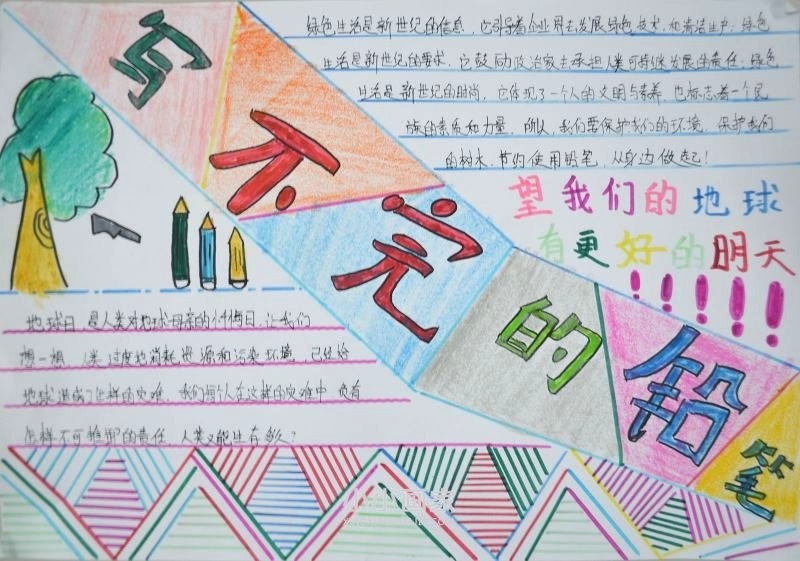 写不完的铅笔
绿色生活是新世纪的信息，它引导着企业界去发展绿色技术，和清洁生产；绿色
生活是新世纪的要求，它鼓励政治家去承担人类可持续发展的责任；绿色
生活是新世纪的时尚，它体现了一个人的文明与素养，也标志着一个民
族的素质和力量，所以，我们要保护我们的环境，保护我们
的树木，节约使用铅笔，从身边做起！
望我们的地球
有更好的明天
！！！！！
地球日，是人类对地球母亲的忏悔日，让我们
想一想，人类过度地消耗资源和污染环境，已经给
地球造成了怎样的灾难，我们每个人在这样的灾难中，负有
怎样不可推卸的责任，人类又能生存多久？
小小画家